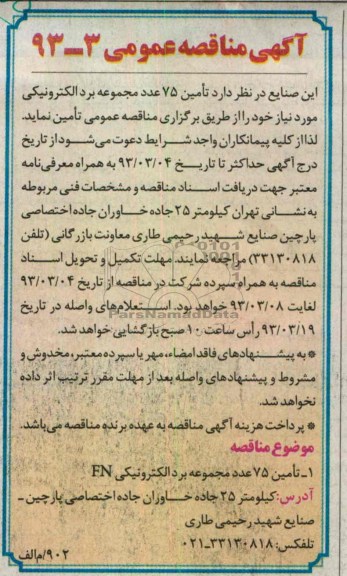 آگهی مناقصه عمومی ۳ــ۹۳
این صنایع در نظر دارد تأمین ۷۵ عدد مجموعه برد الکترونیکی
مورد نیاز خود را از طریق برگزاری مناقصه عمومی تأمین نماید.
لذا از کلیه پیمانکاران واجد شرایط دعوت می‌شود از تاریخ
درج آگهی حداکثر تا تاریخ ۹۳/۰۳/۰۴ به همراه معرفی‌نامه
معتبر جهت دریافت اسناد مناقصه و مشخصات فنی مربوطه
به نشانی تهران کیلومتر ۲۵ جاده خاوران جاده اختصاصی
پارچین صنایع شهید رحیمی طاری معاونت بازرگانی (تلفن
۳۳۱۳۰۸۱۸) مراجعه نمایند. مهلت تکمیل و تحویل اسناد
مناقصه به همراه سپرده شرکت در مناقصه از تاریخ ۹۳/۰۳/۰۴
لغایت ۹۳/۰۳/۰۸ خواهد بود. استعلام‌های واصله در تاریخ
ParsNamadData
۹۳/۰۳/۱۹ رأس ساعت ۱۰ صبح بازگشایی خواهد شد.
* به پیشنهادهای فاقد امضاء، مهر یا سپرده معتبر، مخدوش و
مشروط و پیشنهادهای واصله بعد از مهلت مقرر ترتیب اثر داده
نخواهد شد.
* پرداخت هزینه آگهی مناقصه به عهده برنده مناقصه می‌باشد.
موضوع مناقصه
۱ـ تأمین ۷۵ عدد مجموعه برد الکترونیکی FN
آدرس: کیلومتر ۲۵ جاده خاوران جاده اختصاصی پارچین ـ
صنایع شهید رحیمی طاری
تلفکس: ۳۳۱۳۰۸۱۸ـ۰۲۱
۹۰۲/م الف